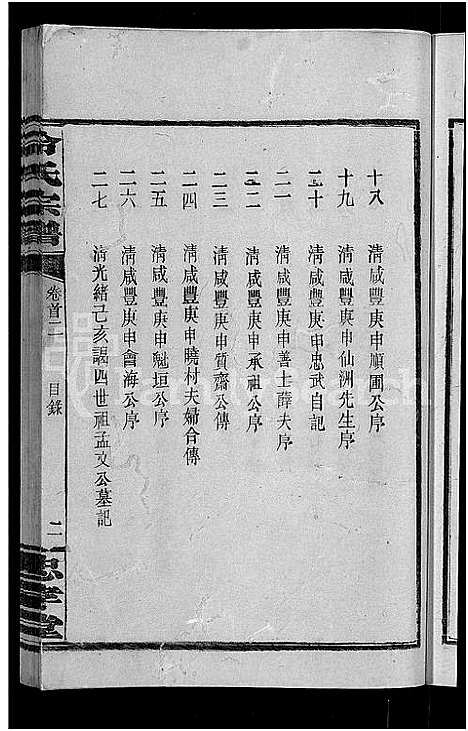 十八 清咸豐庚申順圃公序
十九 清咸豐庚申仙洲先生序
二十 清咸豐庚申忠武自記
二一 清咸豐庚申善士薛夫序
二二 清咸豐庚申承祖公序
二三 清咸豐庚申質齋公傳
二四 清咸豐庚申曉村夫婦合傳
二五 清咸豐庚申魁垣公序
二六 清咸豐庚申會海公序
二七 清光緒己亥謁四世祖孟文公墓記
冷氏宗譜
卷首二
目錄
二
忠孝堂